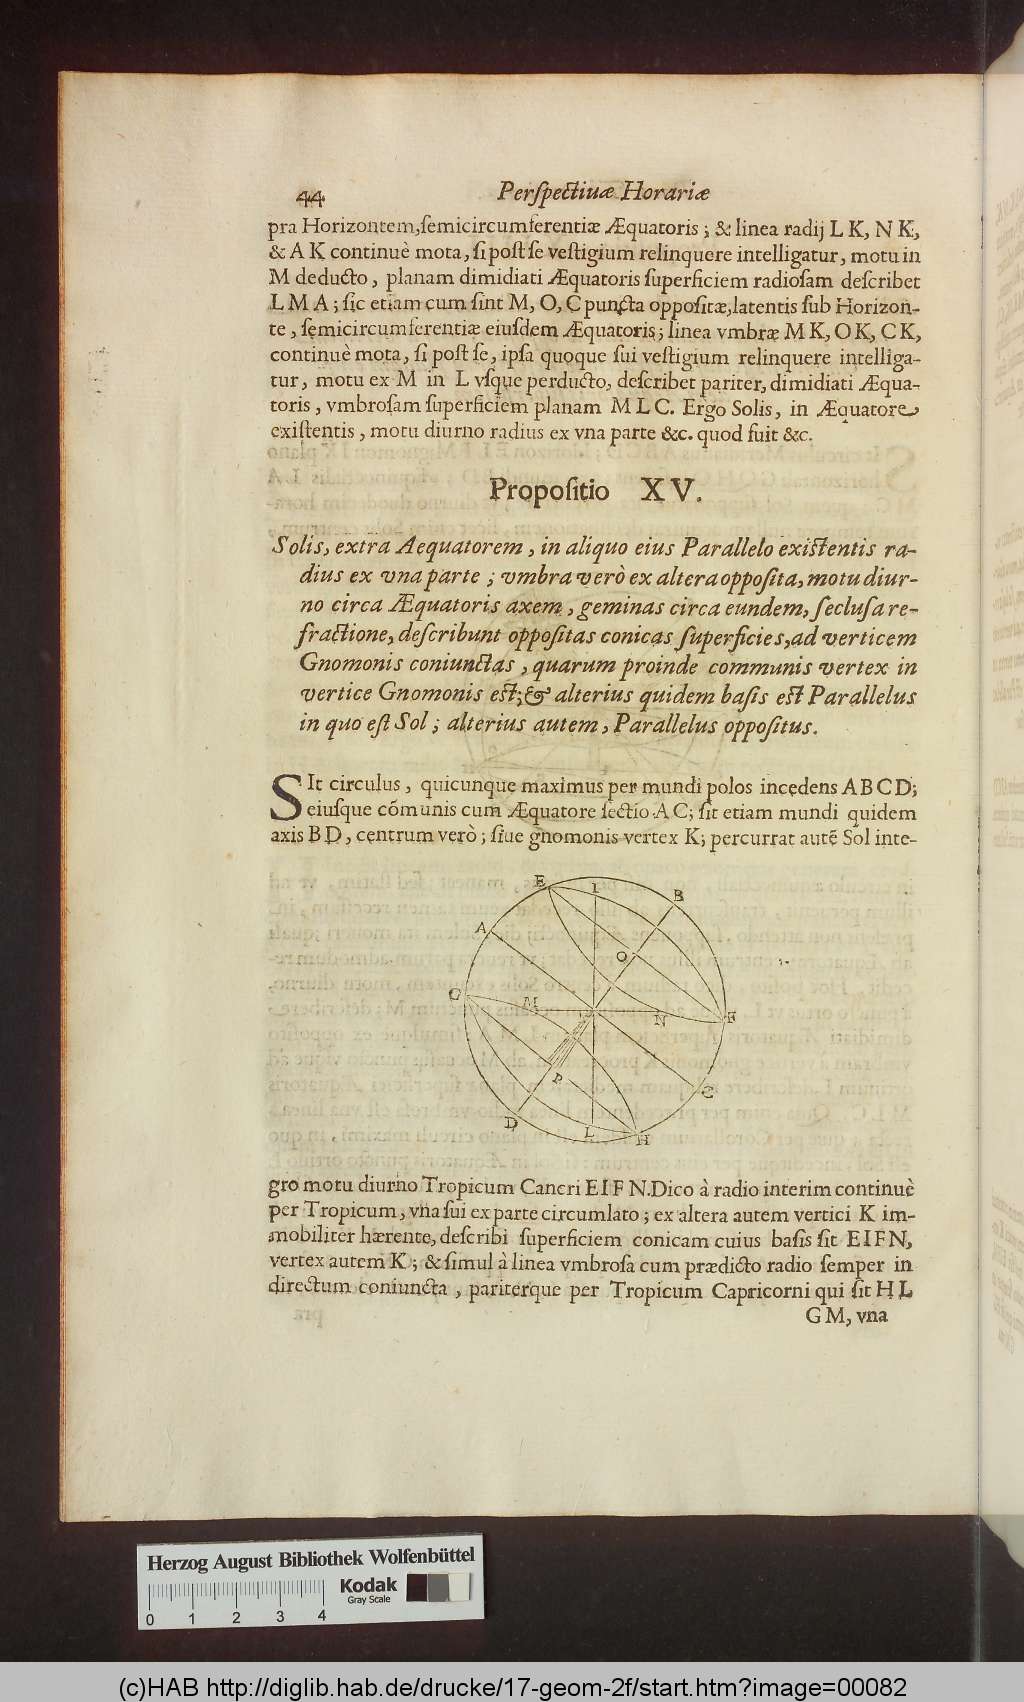 44
Perſpectiuæ Horariæ
pra Horizontem, ſemicircumferentiæ Æquatoris; & linea radij L K, N K,
& A K continuè mota, ſi poſt ſe veſtigium relinquere intelligatur, motu in
M deducto, planam dimidiati Æquatoris ſuperficiem radioſam deſcribet
L M A; ſic etiam cum ſint M, O, C puncta oppoſitæ, latentis ſub Horizon-
te, ſemicircumferentiæ eiuſdem Æquatoris; linea vmbræ M K, O K, C K,
continuè mota, ſi poſt ſe, ipſa quoque ſui veſtigium relinquere intelliga-
tur, motu ex M in L vſque perducto, deſcribet pariter, dimidiati Æqua-
toris, vmbroſam ſuperficiem planam M L C. Ergo Solis, in Æquatore
exiſtentis, motu diurno radius ex vna parte &c. quod fuit &c.
Propoſitio XV.
Solis, extra Aequatorem, in aliquo eius Parallelo exiſtentis ra-
dius ex vna parte; vmbra verò ex altera oppoſita, motu diur-
no circa Æquatoris axem, geminas circa eundem, ſecluſa re-
fractione, deſcribunt oppoſitas conicas ſuperficies, ad verticem
Gnomonis coniunctas, quarum proinde communis vertex in
vertice Gnomonis eſt; & alterius quidem baſis eſt Parallelus
in quo eſt Sol; alterius autem, Parallelus oppoſitus.
SIt circulus, quicunque maximus per mundi polos incedens A B C D;
eiuſque cōmunis cum Æquatore ſectio A C; ſit etiam mundi quidem
axis B D, centrum verò; ſiue gnomonis vertex K; percurrat autē Sol inte-
E
I
B
A
O
G
M
K
N
F
P
C
D
L
H
gro motu diurno Tropicum Cancri E I F N. Dico à radio interim continuè
per Tropicum, vna ſui ex parte circumlato; ex altera autem vertici K im-
mobiliter hærente, deſcribi ſuperficiem conicam cuius baſis ſit E I F N,
vertex autem K; & ſimul à linea vmbroſa cum prædicto radio ſemper in
directum coniuncta, pariterque per Tropicum Capricorni qui ſit H L
G M, vna
Herzog August Bibliothek Wolfenbüttel
Kodak
Gray Scale
0 1 2 3 4
(c)HAB http://diglib.hab.de/drucke/17-geom-2f/start.htm?image=00082